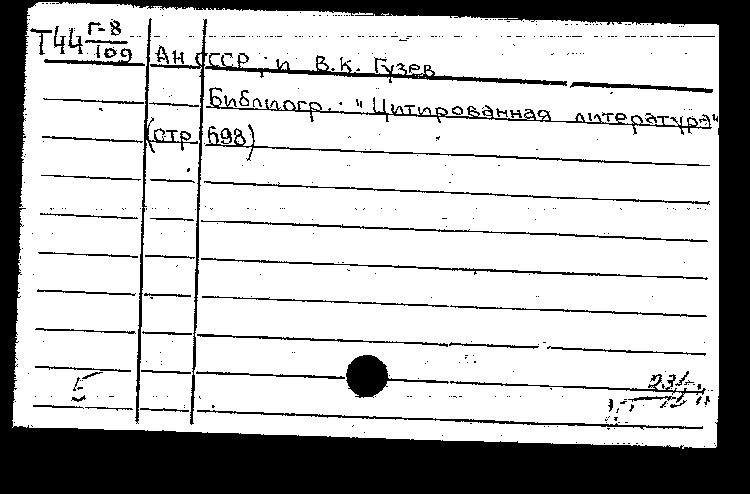 Т44 Г-8
109
Ан СССР ; и В.К. Гузев
Библиогр.: "Цитированная литература"
(стр. 698)
5